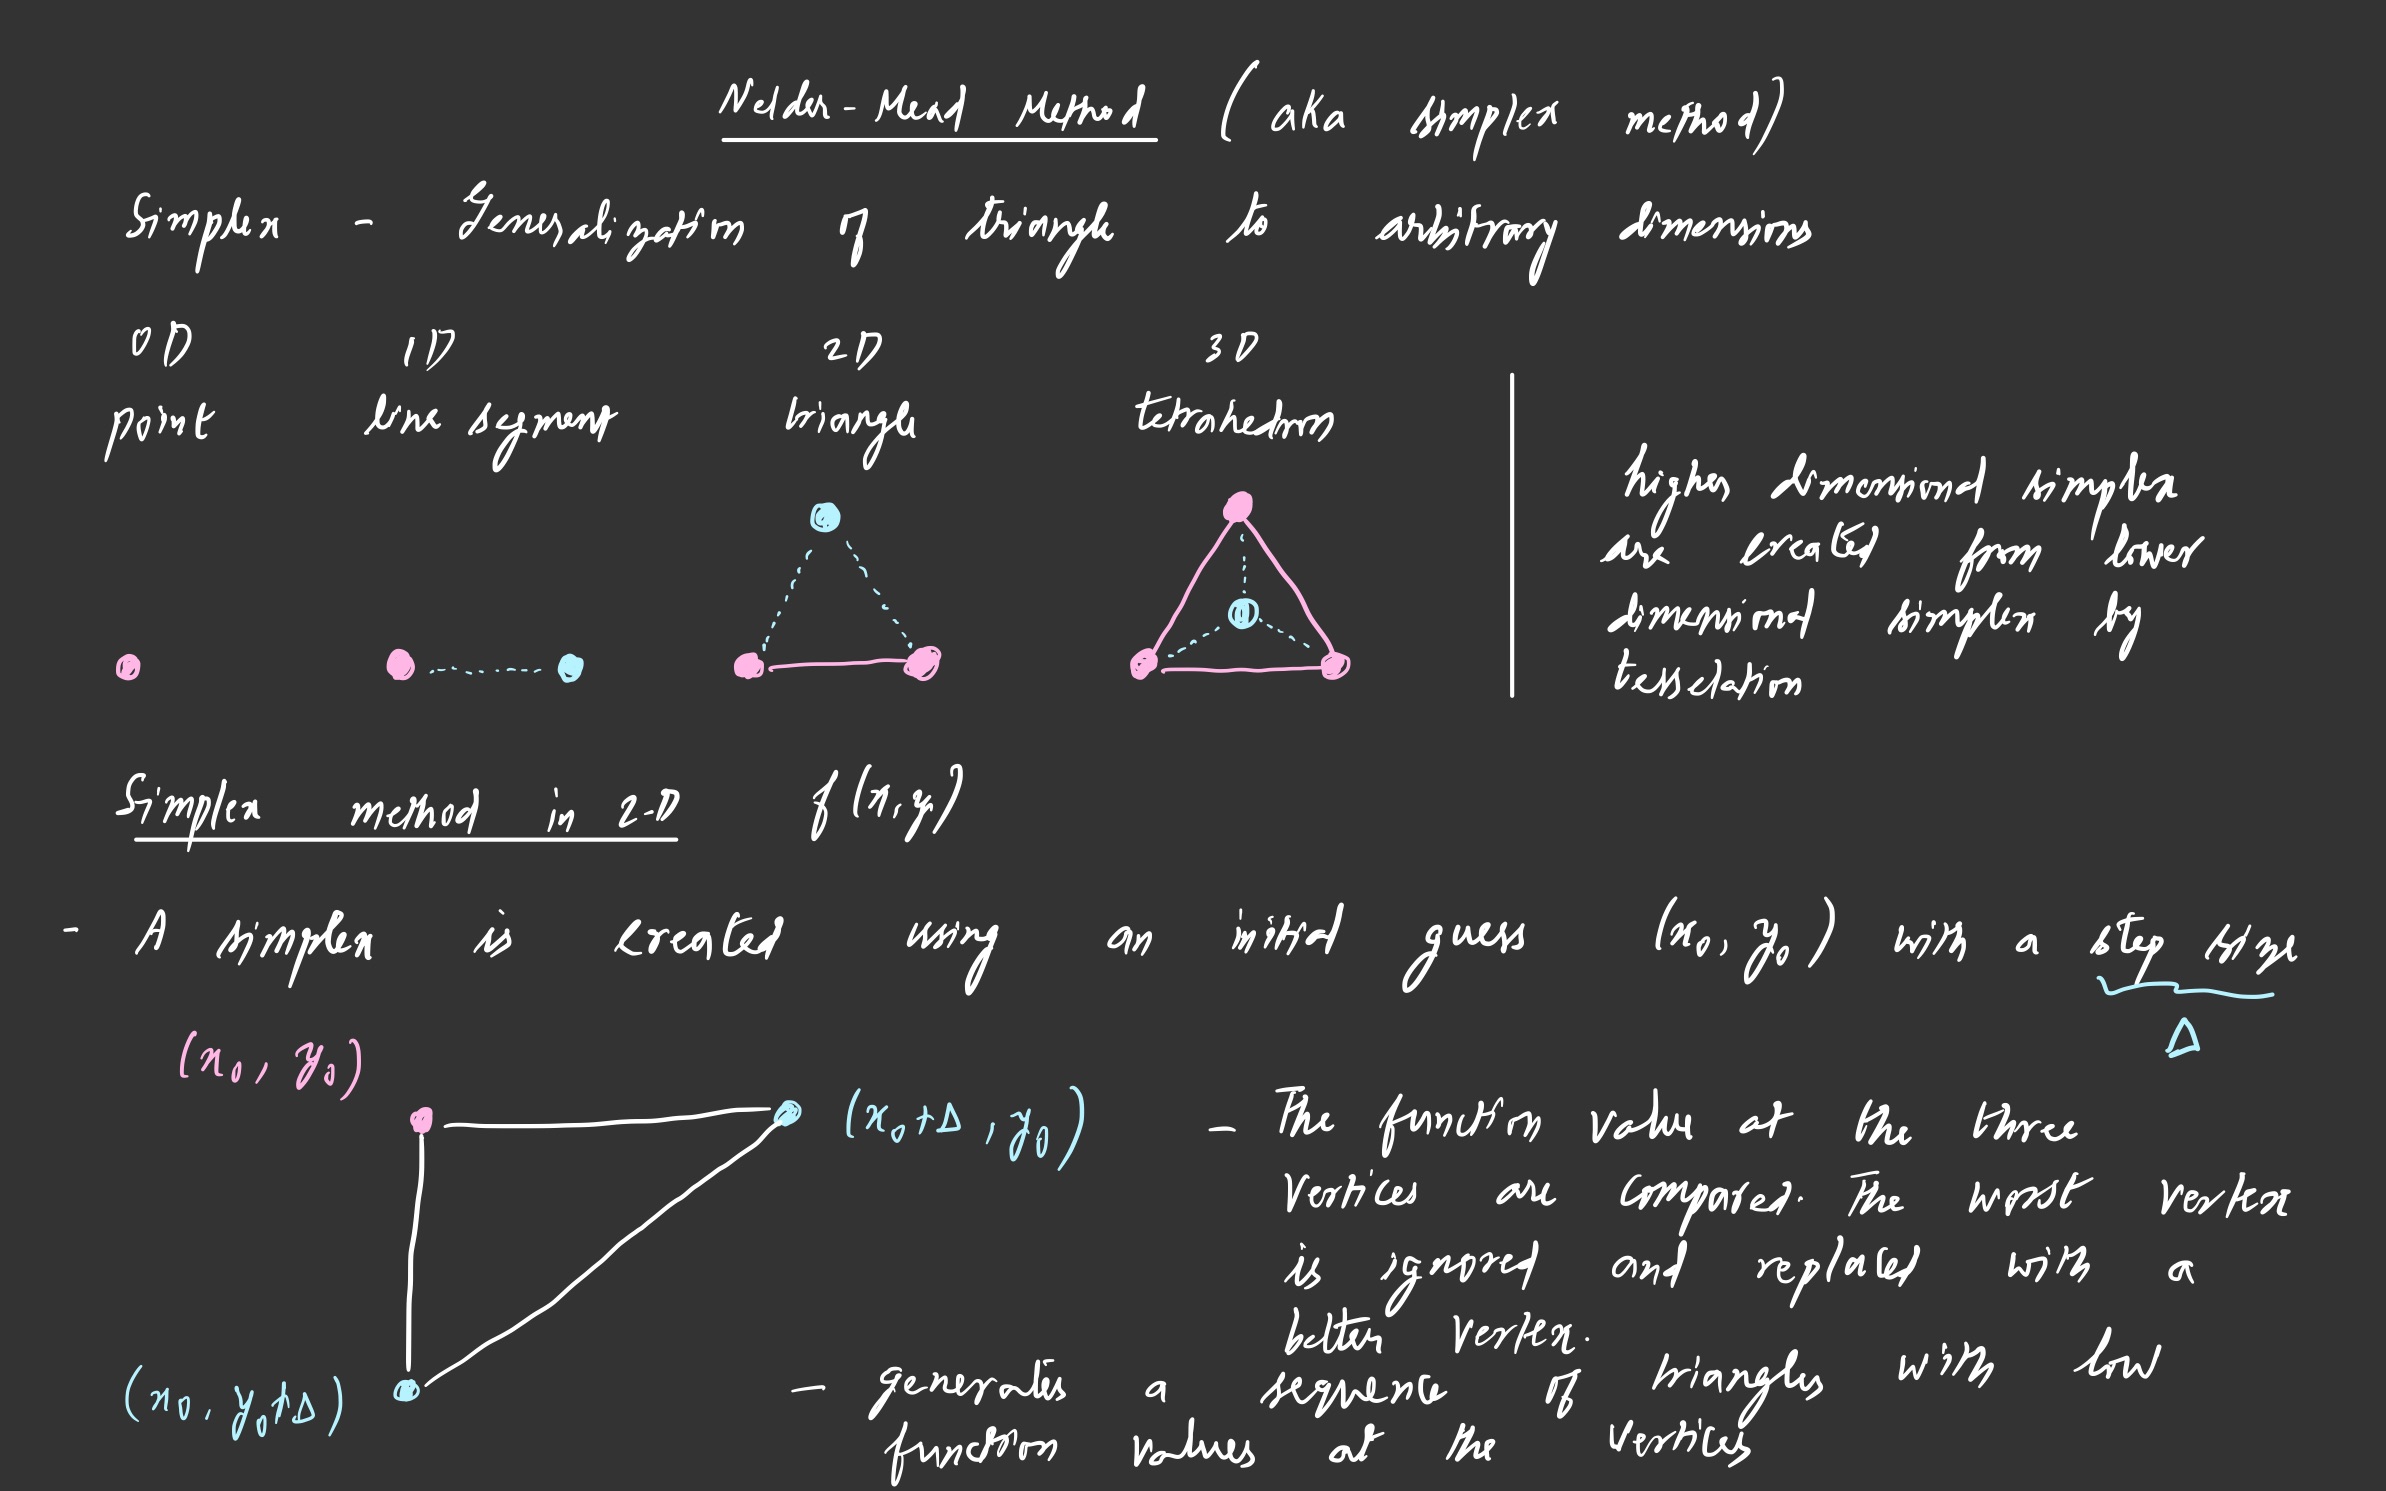 Nelder-Mead Method (aka simplex method)
Simplex - Generalization of triangle to arbitrary dimensions
0D 1D 2D 3D
point line segment triangle tetrahedron
higher dimensional simplex
are created from lower
dimensional simplex by
tesselation
Simplex method in 2-D f(x,y)
- A simplex is created using an initial guess (x₀, y₀) with a step size
Δ
(x₀, y₀)
(x₀+Δ, y₀)
- The function value at the three
vertices are compared. The worst vertex
is ignored and replaced with a
better vertex.
(x₀, y₀+Δ)
- generates a sequence of triangles with low
function values at the vertices